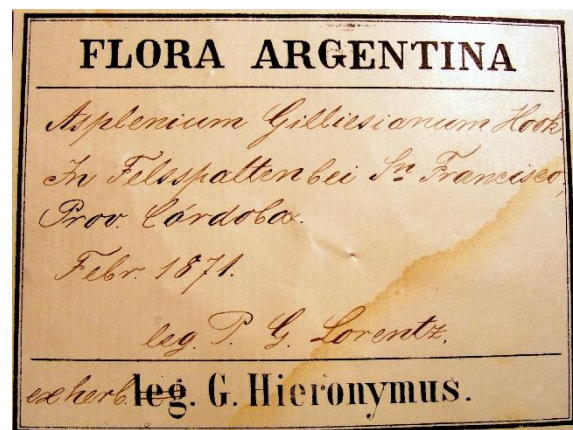 FLORA ARGENTINA
Asplenium Gilliesianum Hook.
In Felsspalten bei Sn Francisco,
Prov. Córdoba.
Febr. 1871.
leg. P. G. Lorentz.
ex herb. leg. G. Hieronymus.